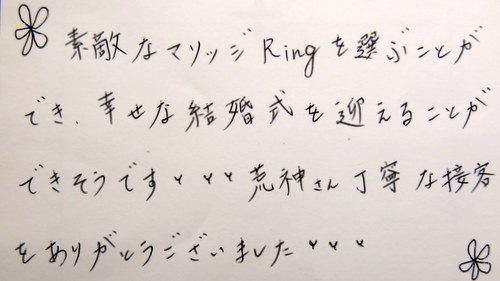 素敵なマリッジRingを選ぶことが
でき、幸せな結婚式を迎えることが
できそうです♥♥♥荒神さん丁寧な接客
をありがとうございました♥♥♥